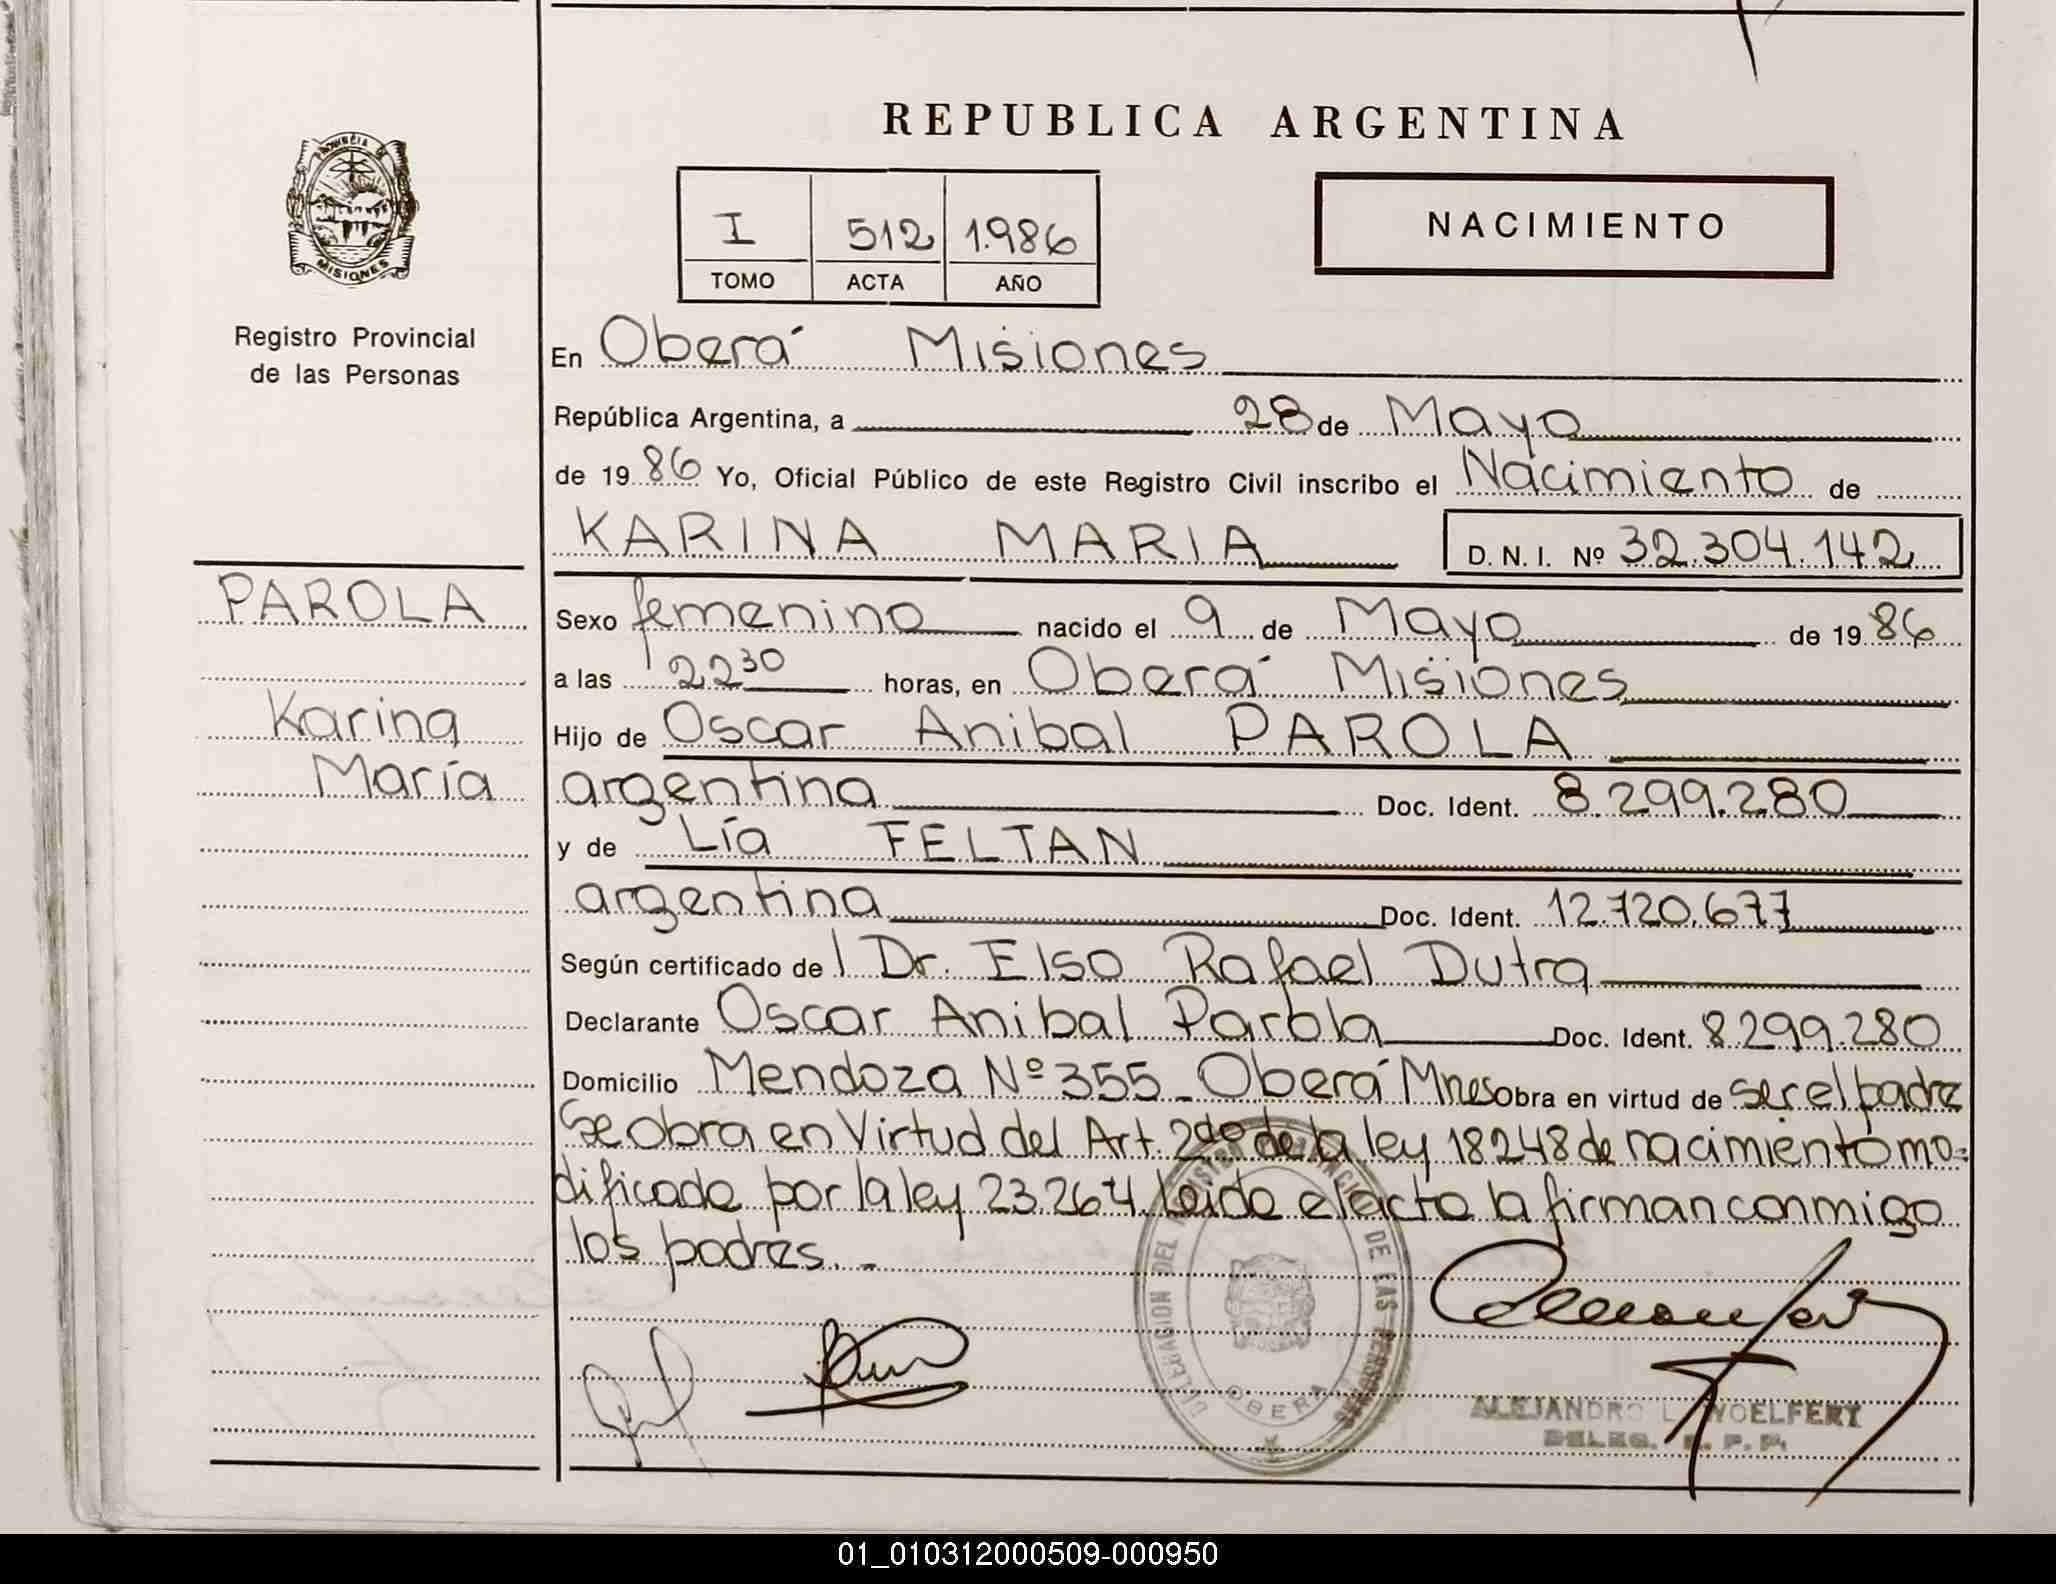 REPUBLICA ARGENTINA
PROVINCIA DE
MISIONES
Registro Provincial
de las Personas
I 512 1.986
TOMO ACTA AÑO
NACIMIENTO
En Oberá Misiones
República Argentina, a 28 de Mayo
de 1986 Yo, Oficial Público de este Registro Civil inscribo el Nacimiento de
KARINA MARIA D. N. I. Nº 32.304.142
PAROLA
Karina
María
Sexo femenino nacido el 9 de Mayo de 1986
a las 22 30 horas, en Oberá Misiones
Hijo de Oscar Anibal PAROLA
argentina Doc. Ident. 8.299.280
y de Lía FELTAN
argentina Doc. Ident. 12.720.677
Según certificado de l Dr. Elso Rafael Dutra
Declarante Oscar Anibal Parola Doc. Ident. 8299.280
Domicilio Mendoza Nº 355 - Oberá Mnes obra en virtud de ser el padre
Se obra en Virtud del Art. 2do de la ley 18248 de nacimiento mo=
dificado por la ley 23.264. Leida el acta la firman conmigo
los padres. -
DE LAS PERSONAS
OBERA
ALEJANDRO L. WOELFERT
DELEG. R. P. P.
01_010312000509-000950